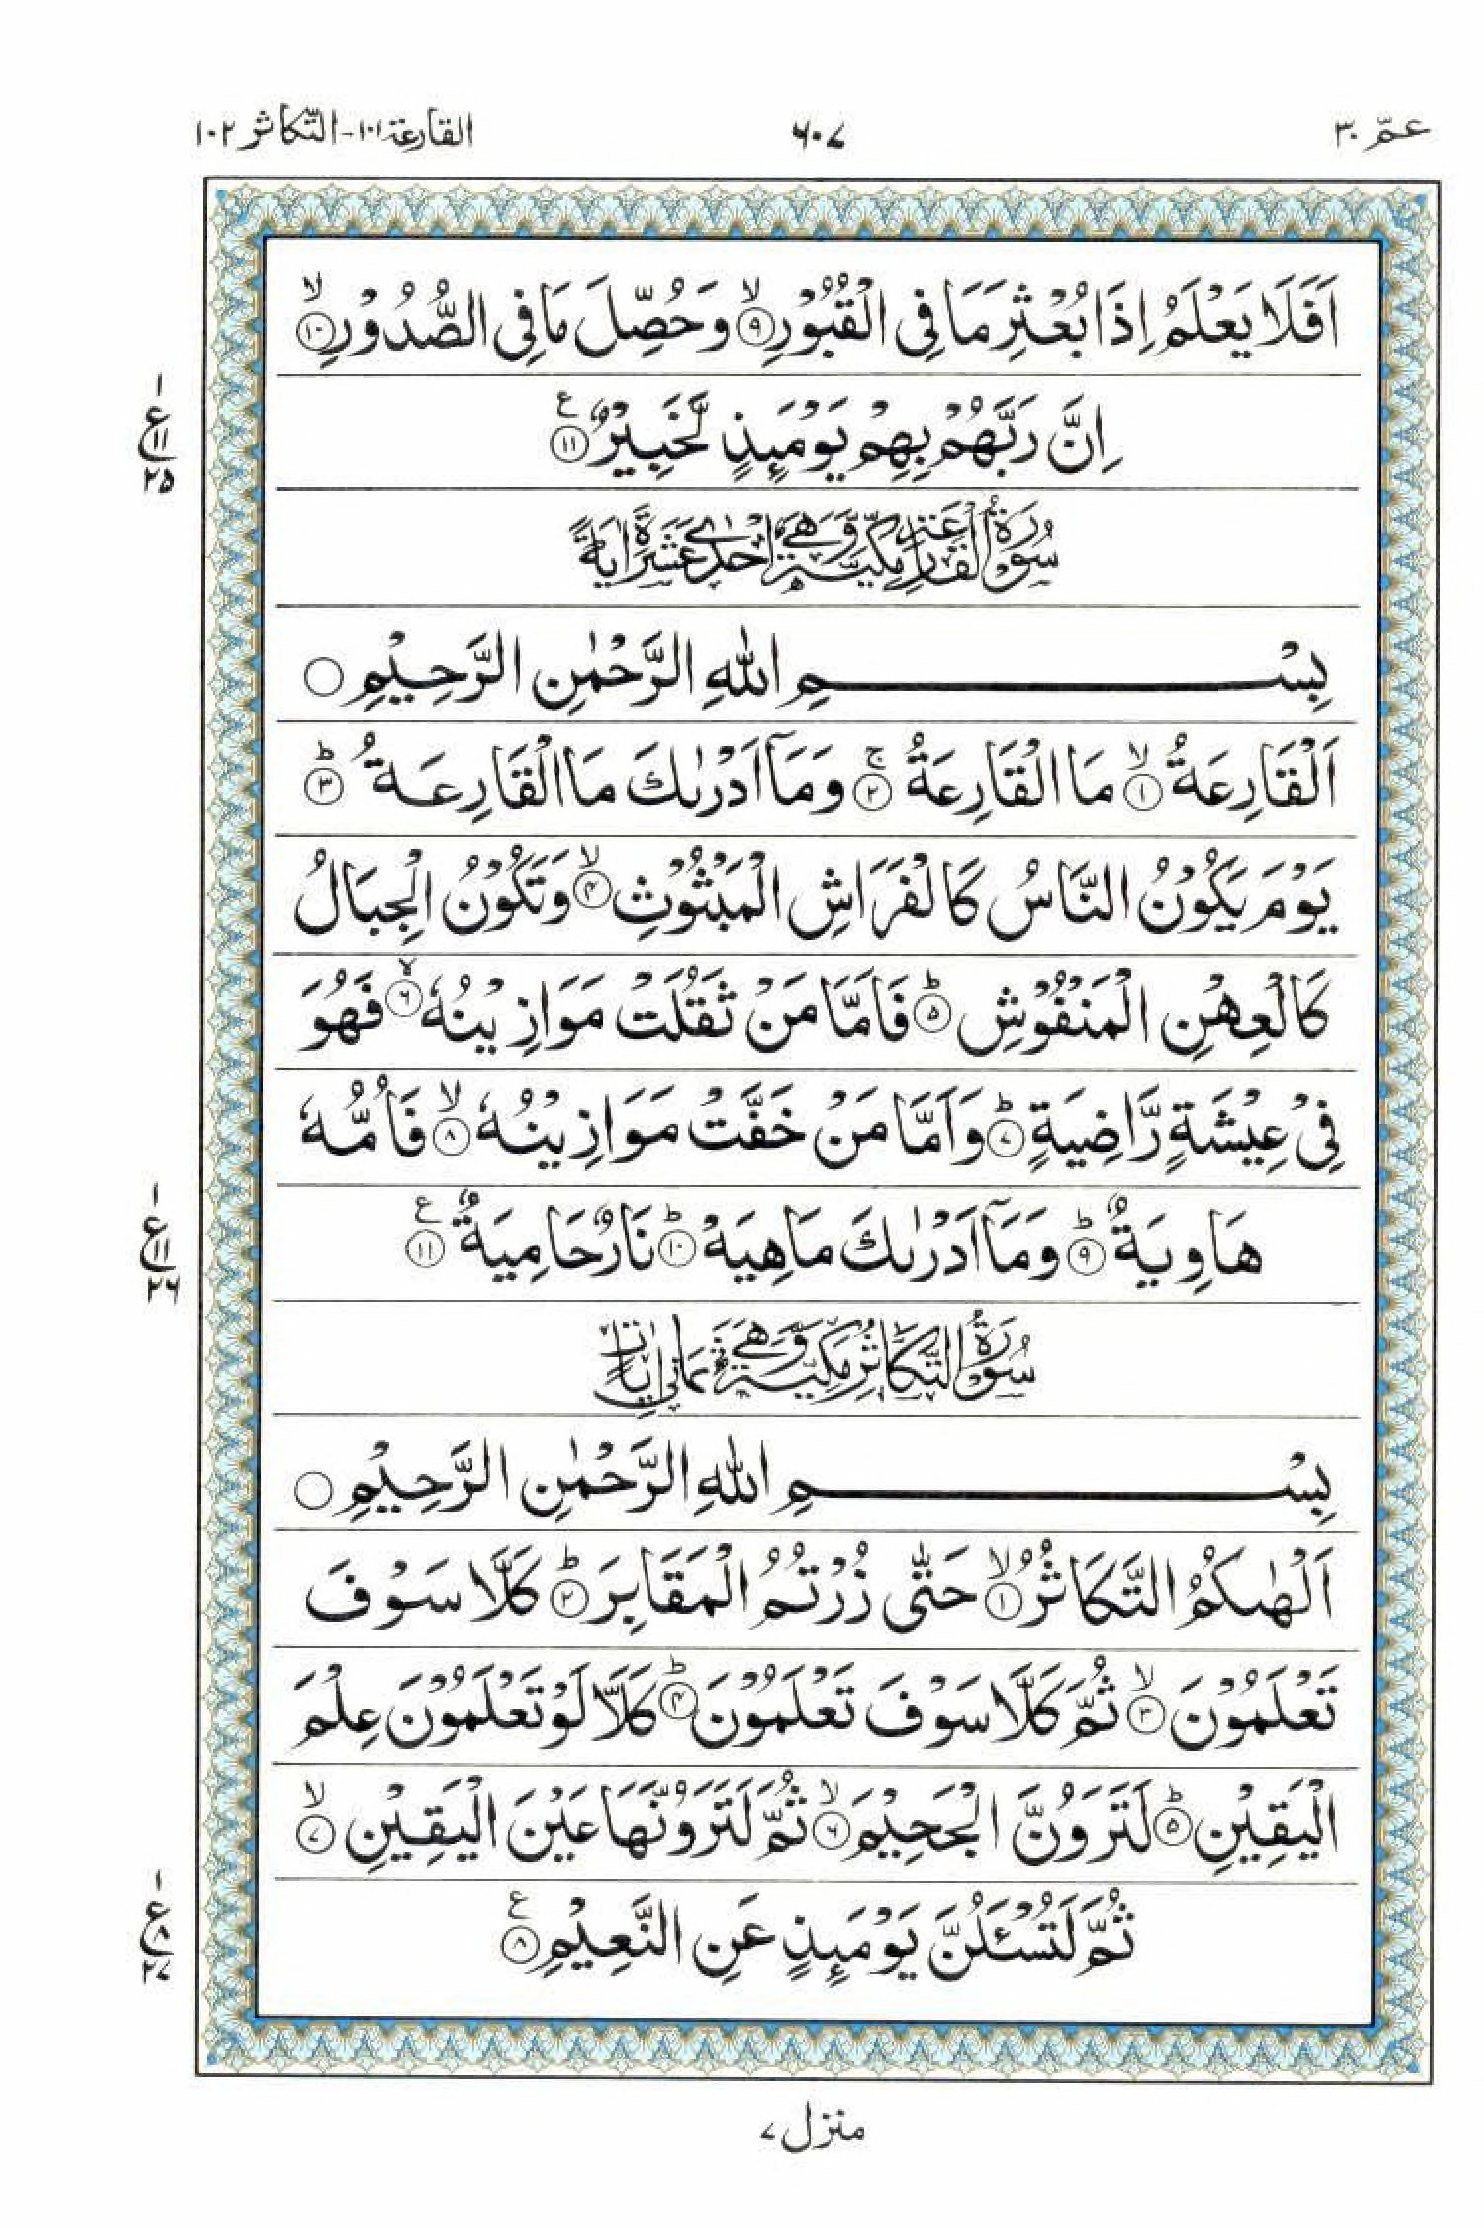 عمّ ٣٠
٦٠٧
القارعة ١٠١ - التّكاثر ١٠٢
اَفَلَا يَعْلَمُ اِذَا بُعْثِرَ مَا فِى الْقُبُوْرِۙ ﴿٩﴾ وَحُصِّلَ مَا فِى الصُّدُوْرِۙ ﴿١٠﴾
اِنَّ رَبَّهُمْ بِهِمْ يَوْمَئِذٍ لَّخَبِيْرٌ ﴿١١﴾ ع
١
ع
١١
٢٥
سُوْرَةُ الْقَارِعَةِ مَكِّيَّةٌ وَّهِيَ اِحْدٰى عَشَرَةَ اٰيَةً
بِسْمِ اللهِ الرَّحْمٰنِ الرَّحِيْمِ
اَلْقَارِعَةُۙ ﴿١﴾ مَا الْقَارِعَةُۚ ﴿٢﴾ وَمَآ اَدْرٰىكَ مَا الْقَارِعَةُؕ ﴿٣﴾
يَوْمَ يَكُوْنُ النَّاسُ كَالْفَرَاشِ الْمَبْثُوْثِۙ ﴿٤﴾ وَتَكُوْنُ الْجِبَالُ
كَالْعِهْنِ الْمَنْفُوْشِؕ ﴿٥﴾ فَاَمَّا مَنْ ثَقُلَتْ مَوَازِيْنُهٗۙ ﴿٦﴾ فَهُوَ
فِيْ عِيْشَةٍ رَّاضِيَةٍؕ ﴿٧﴾ وَاَمَّا مَنْ خَفَّتْ مَوَازِيْنُهٗۙ ﴿٨﴾ فَاُمُّهٗ
هَاوِيَةٌؕ ﴿٩﴾ وَمَآ اَدْرٰىكَ مَاهِيَهْؕ ﴿١٠﴾ نَارٌ حَامِيَةٌ ﴿١١﴾ ع
١
ع
١١
٢٦
سُوْرَةُ التَّكَاثُرِ مَكِّيَّةٌ وَّهِيَ ثَمَانِيْ اٰيَاتٍ
بِسْمِ اللهِ الرَّحْمٰنِ الرَّحِيْمِ
اَلْهٰىكُمُ التَّكَاثُرُۙ ﴿١﴾ حَتّٰى زُرْتُمُ الْمَقَابِرَؕ ﴿٢﴾ كَلَّا سَوْفَ
تَعْلَمُوْنَۙ ﴿٣﴾ ثُمَّ كَلَّا سَوْفَ تَعْلَمُوْنَؕ ﴿٤﴾ كَلَّا لَوْ تَعْلَمُوْنَ عِلْمَ
الْيَقِيْنِؕ ﴿٥﴾ لَتَرَوُنَّ الْجَحِيْمَۙ ﴿٦﴾ ثُمَّ لَتَرَوُنَّهَا عَيْنَ الْيَقِيْنِۙ ﴿٧﴾
ثُمَّ لَتُسْئَلُنَّ يَوْمَئِذٍ عَنِ النَّعِيْمِ ﴿٨﴾ ع
١
ع
٨
٢٧
منزل ٧